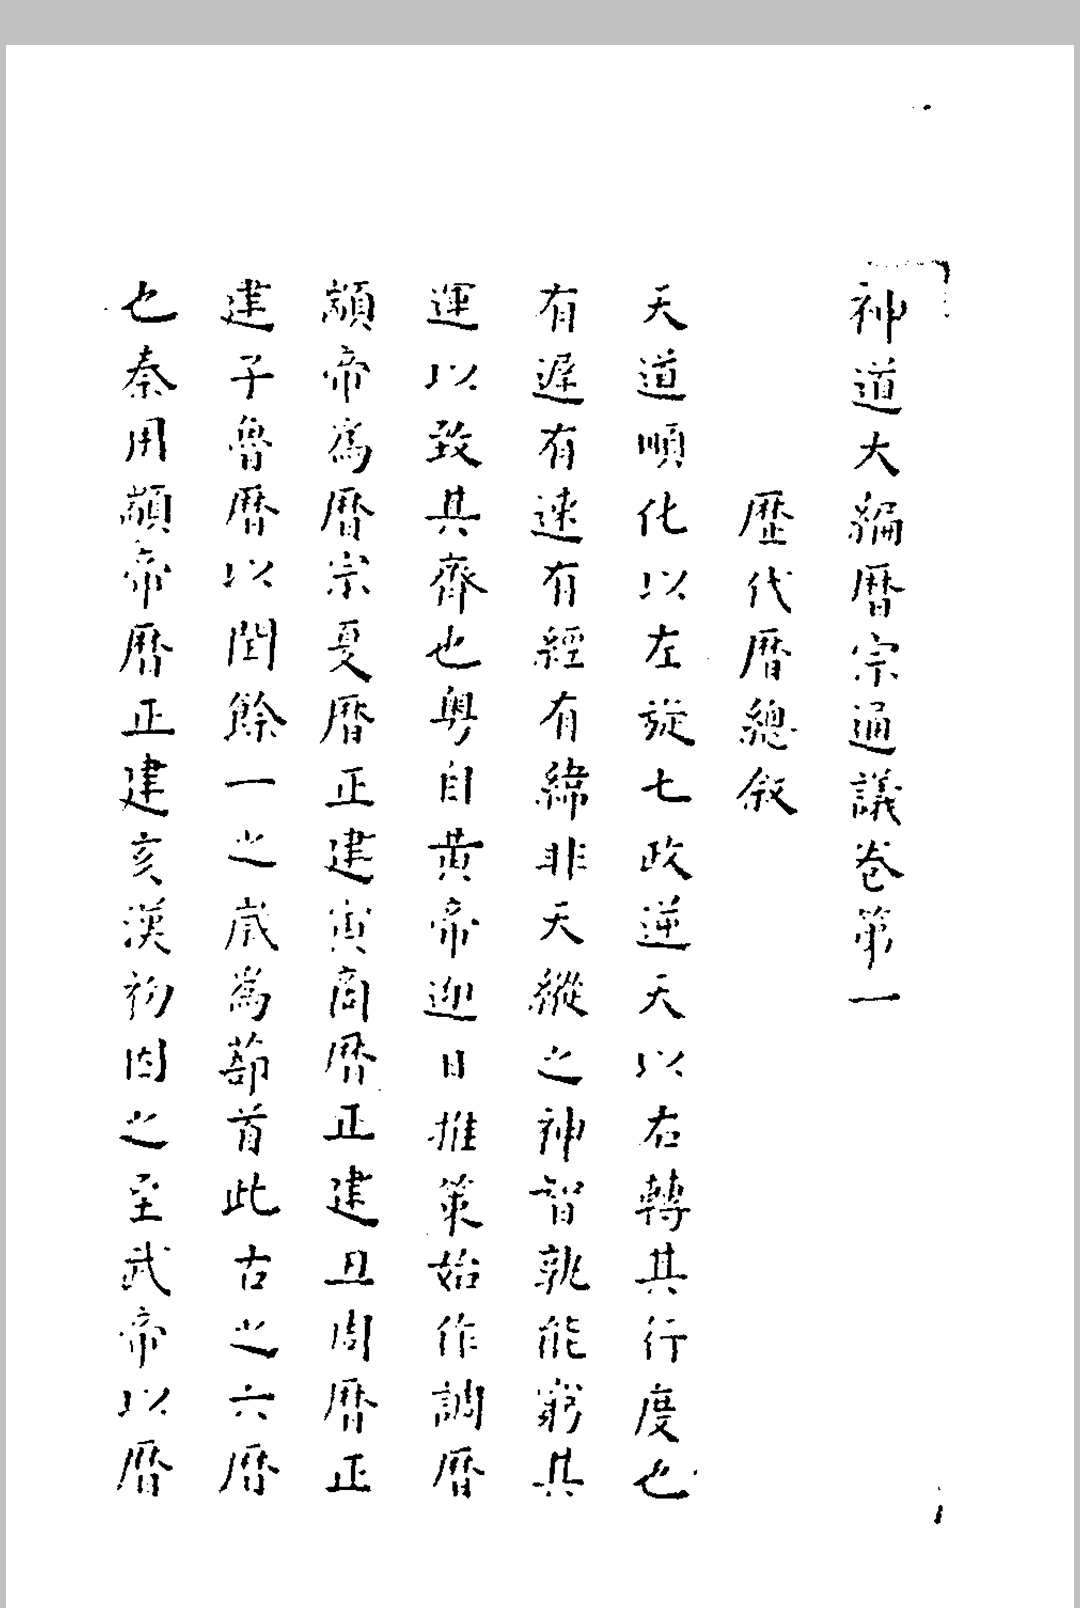 神道大編曆宗通議卷第一
歷代曆總叙
天道順化以左旋七政逆天以右轉其行度也
有遲有速有經有緯非天縱之神智孰能窮其
運以致其齊也粤自黄帝迎日推策始作調曆
顓帝為曆宗夏曆正建寅商曆正建丑周曆正
建子魯曆以閏餘一之歲為蔀首此古之六曆
也秦用顓帝曆正建亥漢初因之至武帝以曆